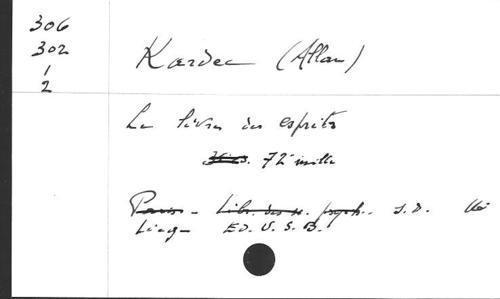 306
302
1
2
Kardec (Allan)
Le livre des esprits
72e mille
Paris - Libr. des sc. psych.. s.d.
Liège - Ed. U.S.B.